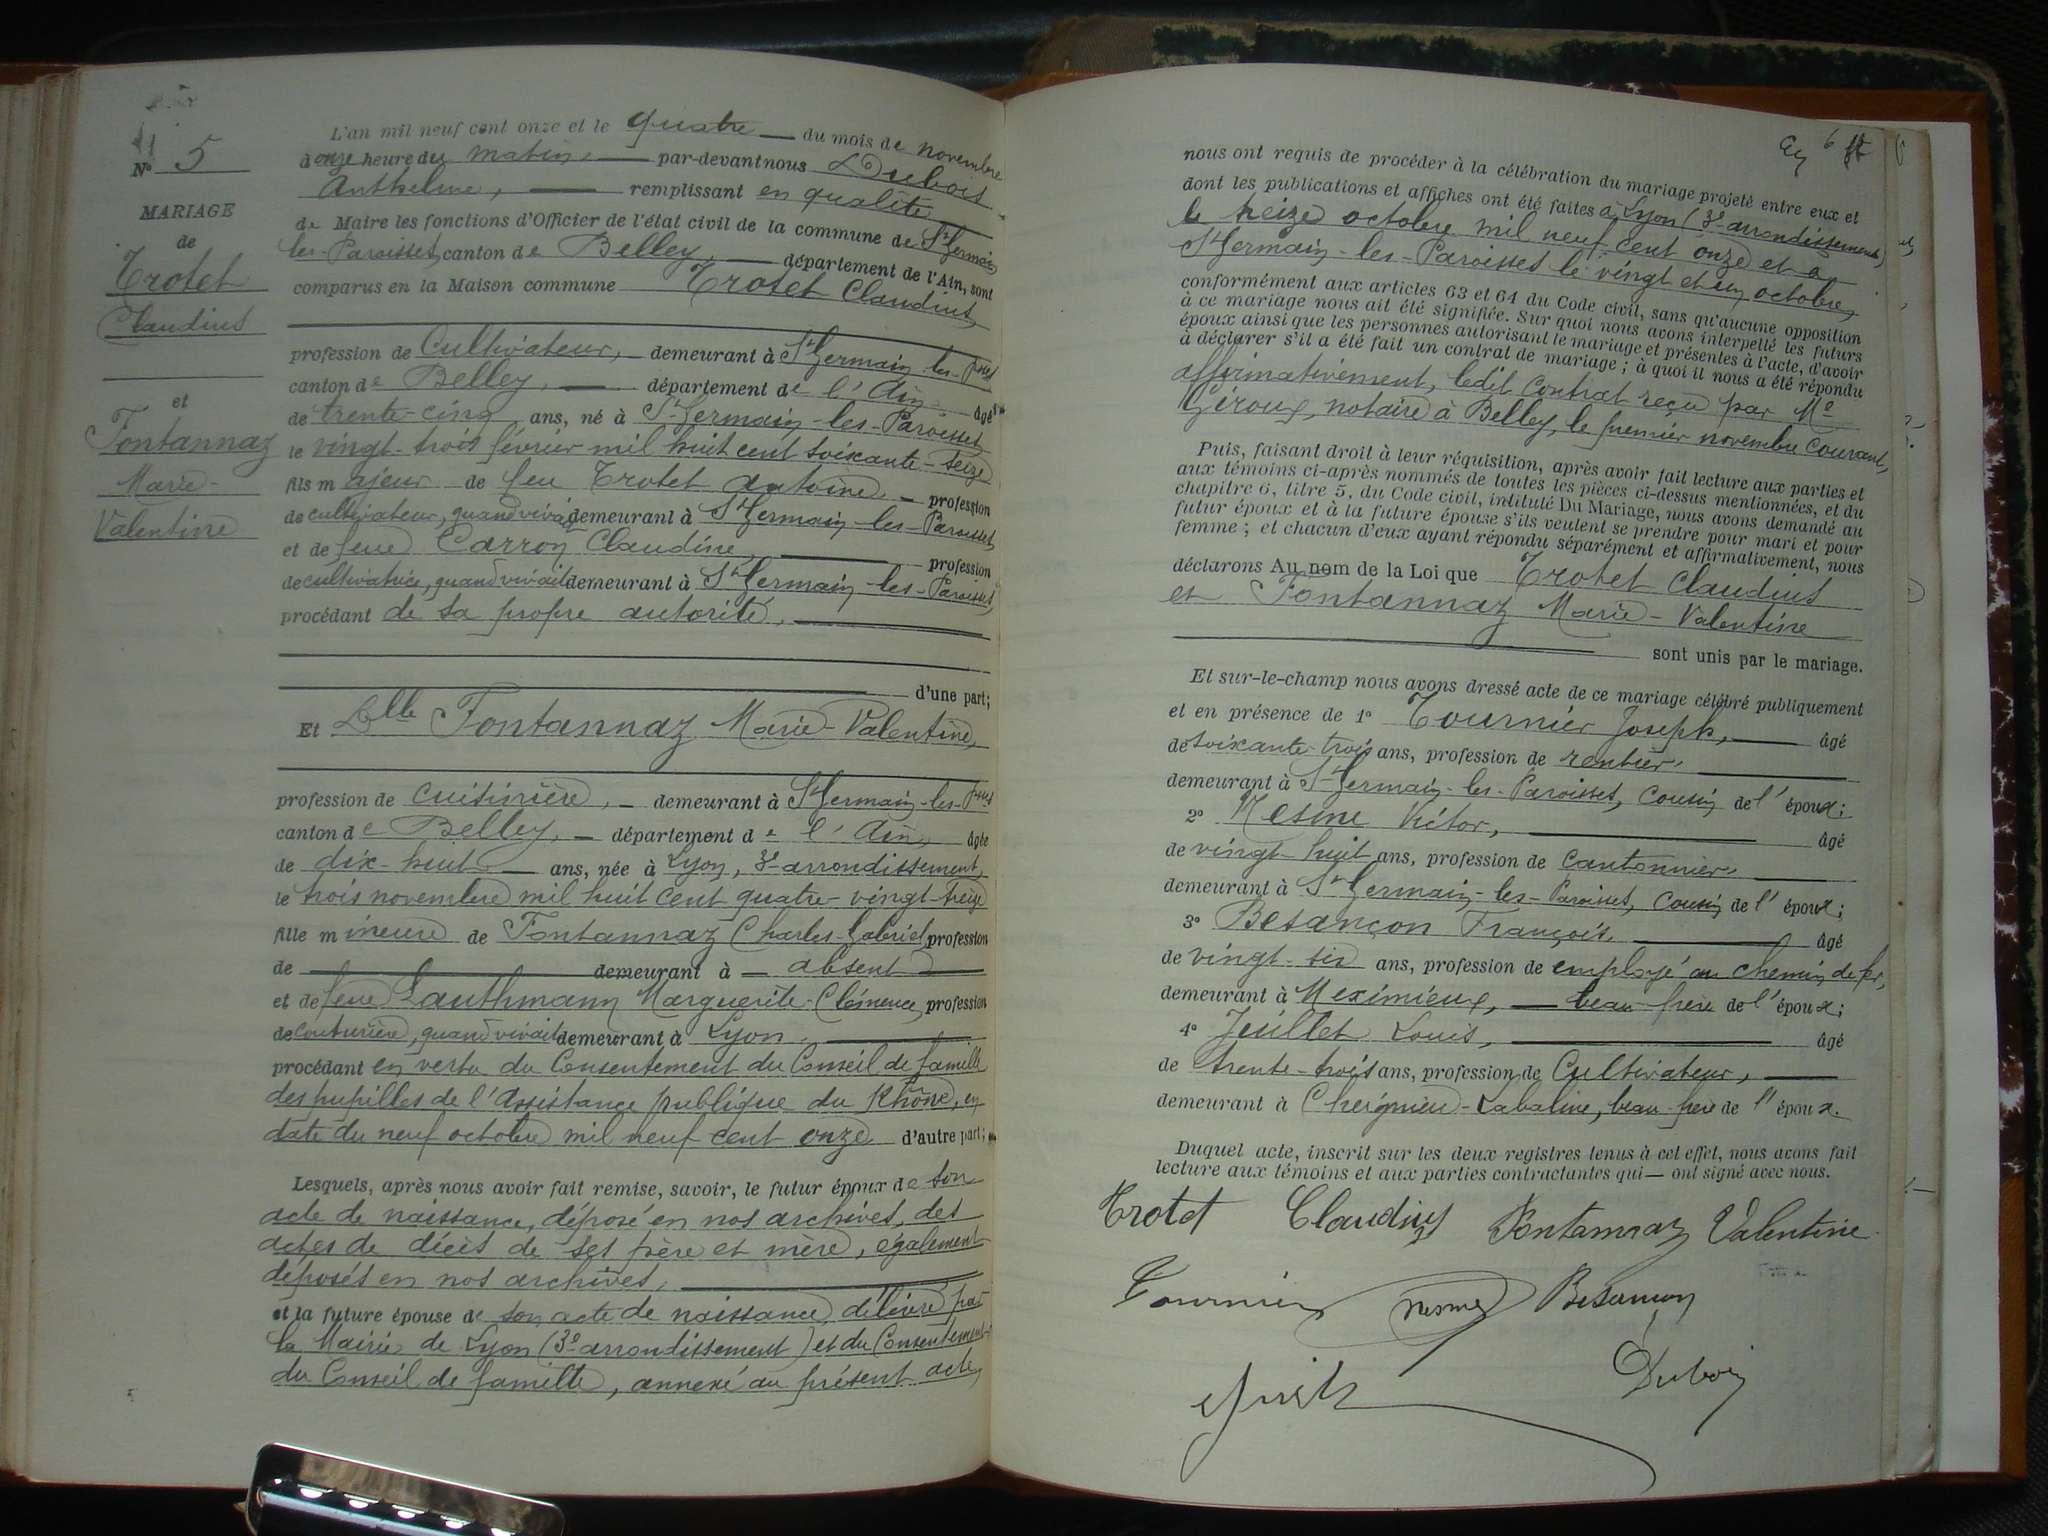 N° 5
MARIAGE
de
Trotet
Claudius
et
Fontannaz
Marie-
Valentine
L'an mil neuf cent onze et le quatre du mois de novembre
à onze heure du matin, par-devant nous Dubois
Anthelme, remplissant en qualité
de Maire les fonctions d'Officier de l'état civil de la commune de St Germain
les-Paroisses, canton de Belley, département de l'Ain, sont
comparus en la Maison commune Trotet Claudius,
profession de Cultivateur, demeurant à St Germain-les-Psses
canton de Belley, département de l'Ain âgé
de trente-cinq ans, né à St Germain-les-Paroisses
le vingt-trois février mil huit cent soixante-seize
fils majeur de feu Trotet Antoine, profession
de cultivateur, quand vivait demeurant à St Germain-les-Paroisses
et de feue Carron Claudine, profession
de cultivatrice, quand vivait demeurant à St Germain-les-Paroisses,
procédant de sa propre autorité,
d'une part;
Et Delle Fontannaz Marie-Valentine,
profession de cuisinière, demeurant à St Germain-les-Psses
canton de Belley, département de l'Ain, âgée
de dix-huit ans, née à Lyon, 3e arrondissement,
le trois novembre mil huit cent quatre-vingt-treize
fille mineure de Fontannaz Charles-Gabriel, profession
de demeurant à absent
et de feue Lauthmann Marguerite-Clémence, profession
de couturière, quand vivait demeurant à Lyon,
procédant en vertu du Consentement du Conseil de famille
des pupilles de l'Assistance publique du Rhône, en
date du neuf octobre mil neuf cent onze d'autre part;
Lesquels, après nous avoir fait remise, savoir, le futur époux de son
acte de naissance, déposé en nos archives, des
actes de décès de ses père et mère, également
déposés en nos archives,
et la future épouse de son acte de naissance délivré par
la Mairie de Lyon (3e arrondissement) et du Consentement
du Conseil de famille, annexé au présent acte,
6
nous ont requis de procéder à la célébration du mariage projeté entre eux et
dont les publications et affiches ont été faites à Lyon (3e arrondissement)
le seize octobre mil neuf cent onze et à
St Germain-les-Paroisses le vingt et un octobre,
conformément aux articles 63 et 64 du Code civil, sans qu'aucune opposition
à ce mariage nous ait été signifiée. Sur quoi nous avons interpellé les futurs
époux ainsi que les personnes autorisant le mariage et présentes à l'acte, d'avoir
à déclarer s'il a été fait un contrat de mariage; à quoi il nous a été répondu
affirmativement, ledit Contrat reçu par Me
Giroux, notaire à Belley, le premier novembre courant,
Puis, faisant droit à leur réquisition, après avoir fait lecture aux parties et
aux témoins ci-après nommés de toutes les pièces ci-dessus mentionnées, et du
chapitre 6, titre 5, du Code civil, intitulé Du Mariage, nous avons demandé au
futur époux et à la future épouse s'ils veulent se prendre pour mari et pour
femme; et chacun d'eux ayant répondu séparément et affirmativement, nous
déclarons Au nom de la Loi que Trotet Claudius
et Fontannaz Marie-Valentine
sont unis par le mariage.
Et sur-le-champ nous avons dressé acte de ce mariage célébré publiquement
et en présence de 1° Tournier Joseph, âgé
de soixante-trois ans, profession de rentier,
demeurant à St Germain-les-Paroisses, cousin de l'époux;
2° Mesme Victor, âgé
de vingt-huit ans, profession de cantonnier,
demeurant à St Germain-les-Paroisses, cousin de l'époux;
3° Besançon François, âgé
de vingt-six ans, profession de employé au chemin de fer,
demeurant à Meximieux, beau-frère de l'époux;
4° Juillet Louis, âgé
de trente-trois ans, profession de Cultivateur,
demeurant à Cheignieu-Labalme, beau-frère de l'époux.
Duquel acte, inscrit sur les deux registres tenus à cet effet, nous avons fait
lecture aux témoins et aux parties contractantes qui ont signé avec nous.
Trotet Claudius Fontannaz Valentine
Tournier mesme Besançon
Dubois